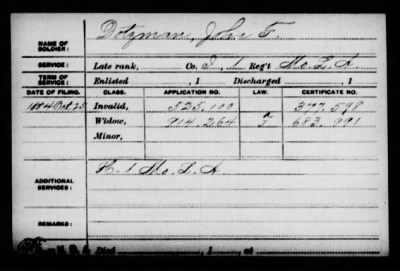 NAME OF SOLDIER: Dotzman, John F.
SERVICE: Late rank, Co. I, 1 Reg't Mo. L. A.
TERM OF SERVICE: Enlisted , 1 Discharged , 1
DATE OF FILING. CLASS. APPLICATION NO. LAW. CERTIFICATE NO.
1884 Oct. 25 Invalid, 525.100 377.598
Widow, 914.264 683.991
Minor,
ADDITIONAL SERVICES: H. 1 Mo. L. A.
Died , 1 , at